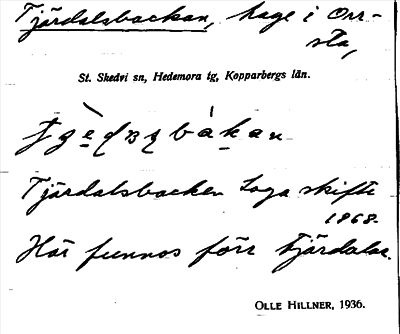 Tjärdalsbackan, hage i Orr-
sta,
St. Skedvi sn, Hedemora tg, Kopparbergs län.
Tjärdalsbacken Laga skifte
1868.
Här funnos förr tjärdalar.
OLLE HILLNER, 1936.